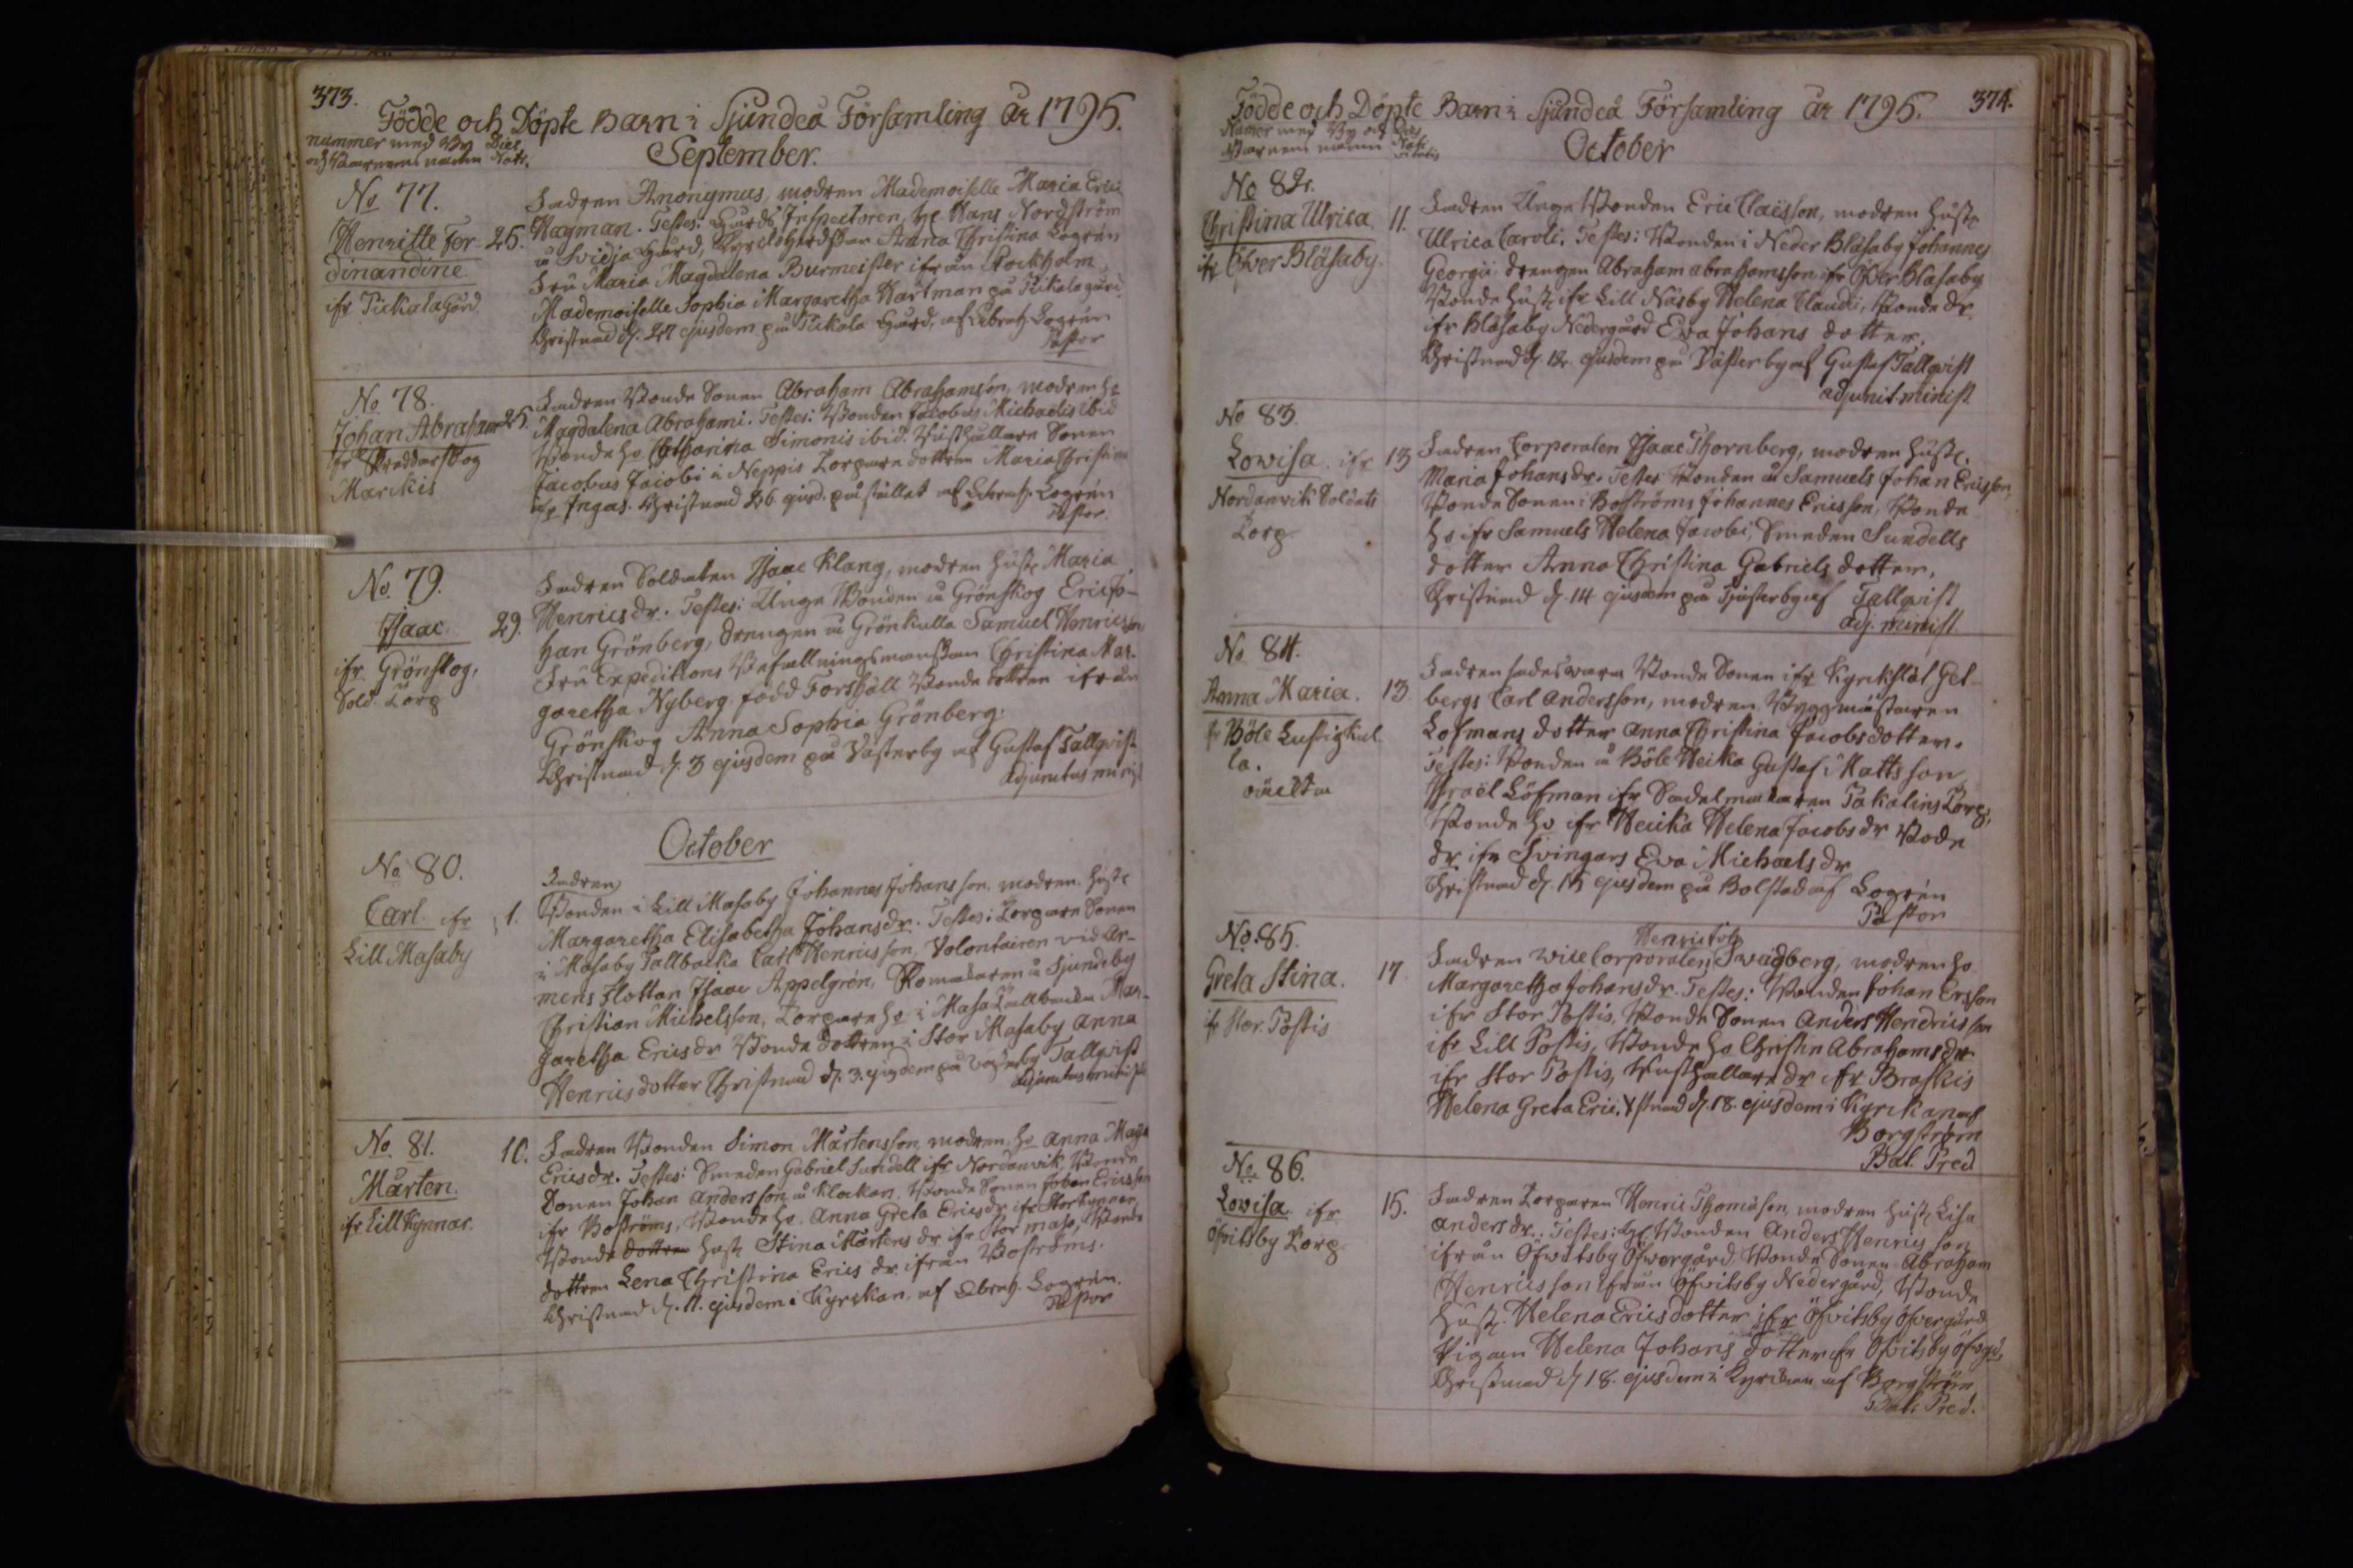 373.
Födde och Döpte Barn i Sjundeå Församling år 1795.
nummer med By Dies
och Barnens namn Nati.
September.
No 77.
Henriette Fer-
dinandine
ifr Pickala Gård
25.
Fadren Anonymus, modren Mademoiselle Maria Erici
Hagman. Testes: Gårds Inspectoren, hr Hans Nordström
å Svidja Gård, Kyrckoherdskan Anna Christina Logrén
Fru Maria Magdalena Burmeister ifrån Rockholm
Mademoiselle Sophia Margaretha Hartman på Pikala gård.
Christnad d. 27 ejusdem på Pickala Gård, af Abrah. Logrén
Pastor
No 78.
Johan Abraham
ifr Skreddarskog
Marckis
25.
Fadren Bonde Sonen Abraham Abrahamsson, modren ho
Magdalena Abrahami. Testes: Bonden Jacobus Michaelis ibid
Bonde ho Catharina Simonis ibid. Rusthållare Sonen
Jacobus Jacobi i Neppis Torpare dottren Maria Christina
ifr Ingas. Christnad 26 ejusd. på stället af Abrah. Logrén
Pastor.
No. 79.
Isaac.
ifr Grönskog,
Sold. Torp
29.
Fadren Soldaten Isaac Klang, modren hustr Maria
Henricsdr. Testes: Unge Bonden å Grönskog Eric Jo-
han Grönberg, drengen å Grönkulla Samuel Henricsson
Fru Expeditions Befallningsmanskan Christina Mar-
garetha Nyberg född Forshäll Bonde dottren ifrån
Grönskog Anna Sophia Grönberg.
Christnad d. 3 ejusdem på Västerby af Gustaf Tallqvist
Adjunctus minist
October
No 80.
Carl ifr
Lill Masaby
1.
Fadren
Bonden i Lill Masaby Johannes Johansson, modren hustr
Margaretha Elisabetha Johansdr. Testes: Torpare Sonen
i Masaby Tallbacka Carl Henricsson, Volontairen vid Ar-
mens Flottan Isaac Appelgrén, Skomakaren å Sjundby
Christian Michelsson, Torpare ho i Masa Tallbacka Mar-
garetha Ericsdr Bonde dottren i Stor Masaby Anna
Henricsdotter Christnad d. 3. ejusdem på Västerby Tallqvist
Adjunctus minist
No 81.
Mårten.
ifr Lill Kynnar.
10.
Fadren Bonden Simon Mårtensson, modren ho Anna Maja
Ericsdr. Testes: Smeden Gabriel Sundell ifr Nordanvik, Bonde
Sonen Johan Andersson å Klockars, Bonde Sonen Johan Ericsson
ifr Boströms, Bonde ho. Anna Greta Ericsdr ifr Storkynnar,
Bonde dottren hustr Stina Mårtens dr ifr Stor masa, Bonde
dottren Lena Christina Erics dr ifrån Boströms.
Christnad d. 11. ejusdem i Kyrckan, af Abrah. Logrén.
Pastor
Födde och Döpte Barn i Sjundeå Församling år 1795.
374.
Numer med By och Dies
Barnens namn Nati
October
No 82.
Christina Ulrica
ifr Öfver Bläsaby.
11.
Fadren Unge Bonden Eric Claësson, modren hustr
Ulrica Caroli. Testes: Bonden i Neder Bläsaby Johannes
Georgii drengen Abraham abrahamsson ifr Öfver Blasaby
Bonde hustr ifr Lill Näsby Helena Claudii, Bonde dr.
ifr Bläsaby Nedergård Eva Johans dotter.
Christnad d. 12. ejusdem på Västerby af Gustaf Tallqvist
adjunct. minist
No 83.
Lowisa. ifr
Nordanvik Soldats
Torp.
13
Fadren Corporalen Isaac Thornberg, modren hustr.
Maria Johansdr. Testes Bonden å Samuels Johan Ericsson,
Bonde Sonen i Boströms Johannes Ericsson, Bonde
ho ifr Samuels Helena Jacobi, Smeden Sundells
dotter Anna Christina Gabriels dotter.
Christnad d. 14 ejusdem på Tjusterby af Tallqvist
adj. minist
No 84.
Anna Maria.
fr Böle Lustigkul
la.
oäckta
13
Fadren Bonde Sonen ifr Kyrckslät Get-
bergs Carl Andersson, modren Byggmästaren
Lofmans dotter Anna Christina Jacobsdotter.
Testes: Bonden å Böle Heika Gustaf Mattsson
Israël Löfman ifr Sadelmakaren Takalins Torp,
Bonde ho ifr Heicka Helena Jacobs dr Bode
dr ifr Svingars Eva Michaels dr
Christnad d. 15 ejusdem på Bolstad af Logrén
Pastor
No. 85.
Greta Stina.
fr Stor Postis
17
Fadren vice Corporalen Henric Joh Swägberg, modren ho
Margaretha Johansdr. Testes: Bonden Johan Ersson
ifr Stor Postis, Bonde Sonen Anders Hendricsson
ifr Lill Postis, Bonde ho Christin Abrahamsdr
ifr Stor Postis, Rusthållare dr ifr Braskis
Helena Greta Eric. Xstnad d. 18. ejusdem i Kyrckan af
Borgström
Bat. Pred
No 86.
Lowisa. ifr
Öfvitsby Torp
15.
Fadren Torparen Henric Thomasson, modren hustr Lisa
Andersdr. Testes: Bonden Anders Henricsson
ifrån Öfwitsby Öfwergård Bonde Sonen Abraham
Henricsson ifrån Öfvitsby Nedergård, Bonde
hustr. Helena Ericsdotter ifr Öfvitsby öfvergård
Pigan Helena Johans dotter ifr Öfvitsby öfvgd,
Christnad d 18. ejusdem i Kyrckan af Borgström
Bat. Pred.